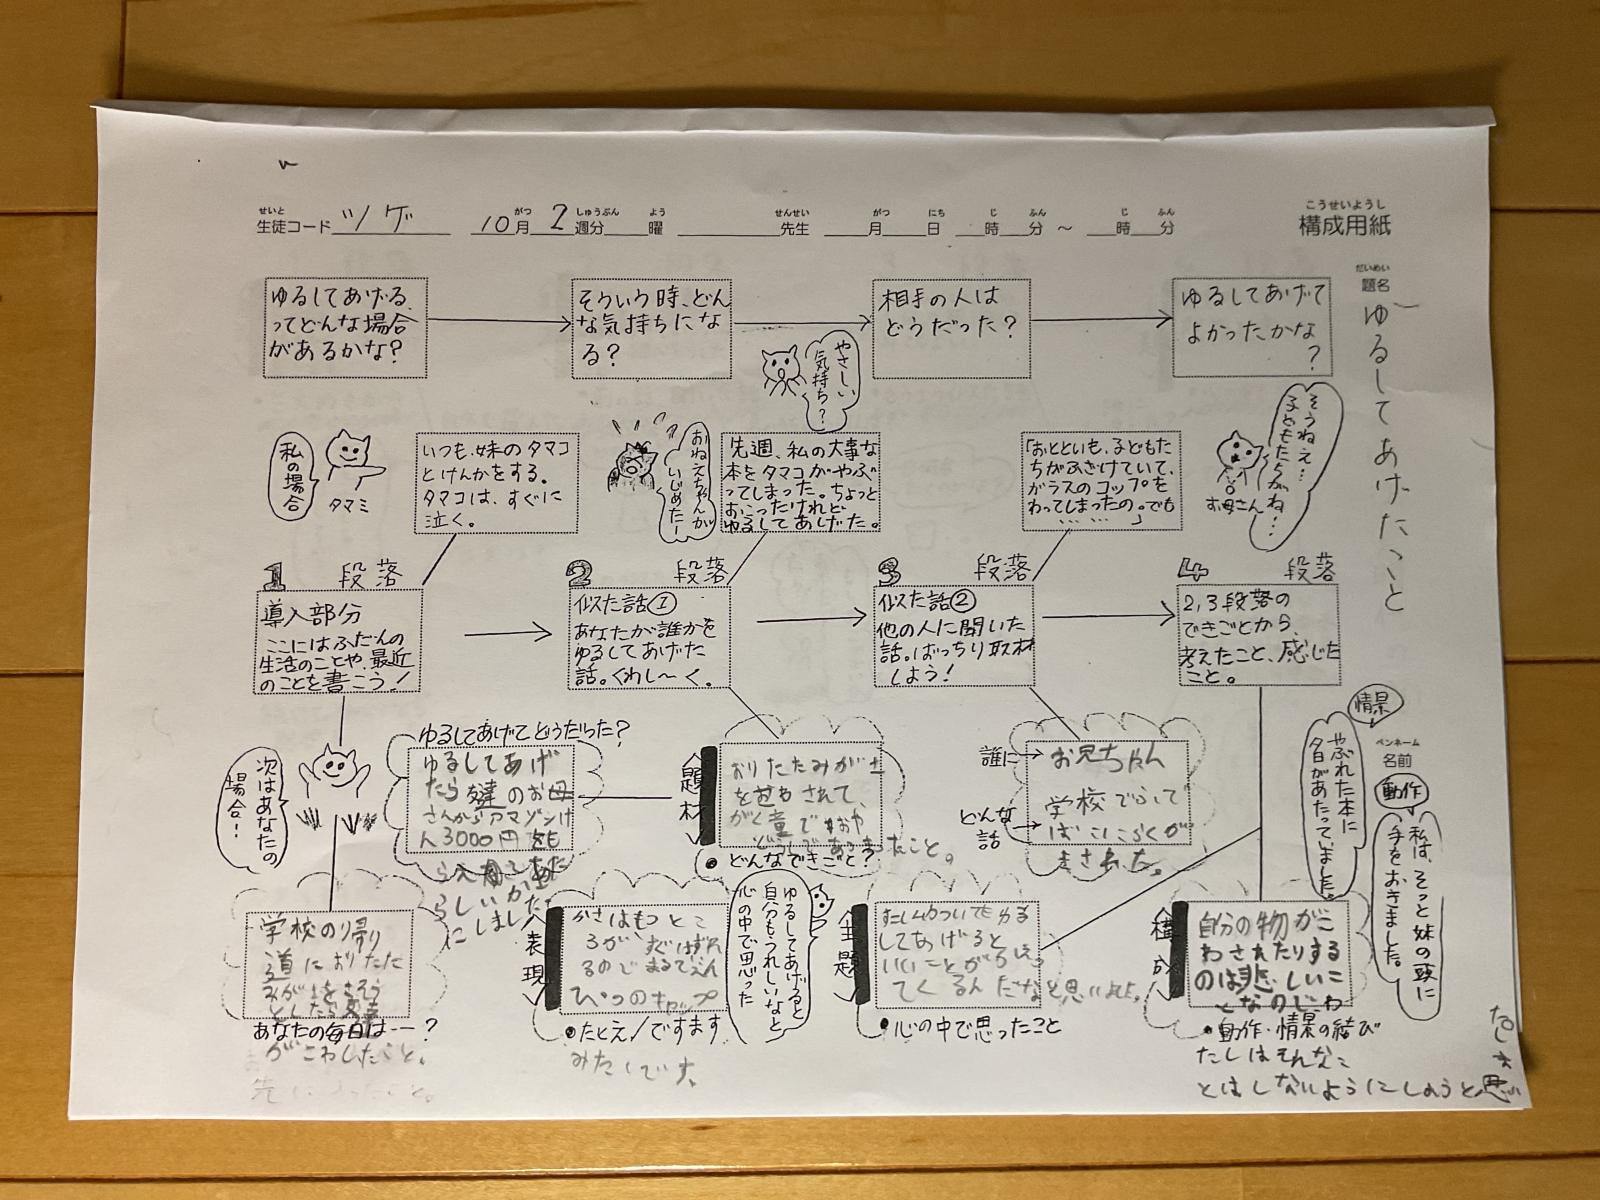 せいと
生徒コード ツゲ 10月 がつ 2週分 しゅうぶん 曜 よう 先生 せんせい 月 がつ 日 にち 時 じ 分 ふん ～ 時 じ 分 ふん
こうせいようし
構成用紙
だいめい
題名
ゆるしてあげたこと
ペンネーム
名前
ゆるしてあげる、
ってどんな場合
があるかな?
そういう時、どん
な気持ちにな
る?
相手の人は
どうだった?
ゆるしてあげて
よかったかな
?
私の場合
タマミ
いつも、妹のタマコ
とけんかをする。
タマコは、すぐに
泣く。
おねえちゃんが
いじめたー
やさしい
気持ち?
先週、私の大事な
本をタマコがやぶ
ってしまった。ちょっと
おこったけれど
ゆるしてあげた。
「おとといも、子どもた
ちがふざけていて、
ガラスのコップを
わってしまったの。でも
……」
そうねえ…
子どもたちがね…
お母さん
1 段落
導入部分
ここにはふだんの
生活のことや、最近
のことを書こう!
2 段落
似た話①
あなたが誰かを
ゆるしてあげた
話。くわし〜く。
3 段落
似た話②
他の人に聞いた
話。ばっちり取材
しよう!
4 段落
2,3段落の
できごとから、
考えたこと、感じた
こと。
次はあなたの
場合!
ゆるしてあげてどうだった?
ゆるしてあげ
たら のお母
さんからアマゾンけ
ん3000円をも
らしい
にしました
題材
おりたたみがさ
を
がく童で
たこと。
どんなできごと?
誰に→
お兄ちゃん
どんな→
話
学校で
された。
情景
やぶれた本に
夕日があたっていました。
動作
私は、そっと妹の頭に
手をおきました。
学校の帰り
道におりたた
みがさをさそう
としたら
がこわしたこと。
あなたの毎日は…?
表現
かさはもつとこ
ろが、すぐはずれ
るので まるでえん
ぴつのキャップ
みたいです。
たとえ/ですます
ゆるしてあげると
自分もうれしいなと
心の中で思った
主題
ゆる
してあげると
いいことが
てくるんだなと思いました。
心の中で思ったこと
構成
自分の物がこ
わされたりする
のは悲しいこ
となのでわ
たしはそんなこ
とはしないようにしようと思い
動作・情景の結び